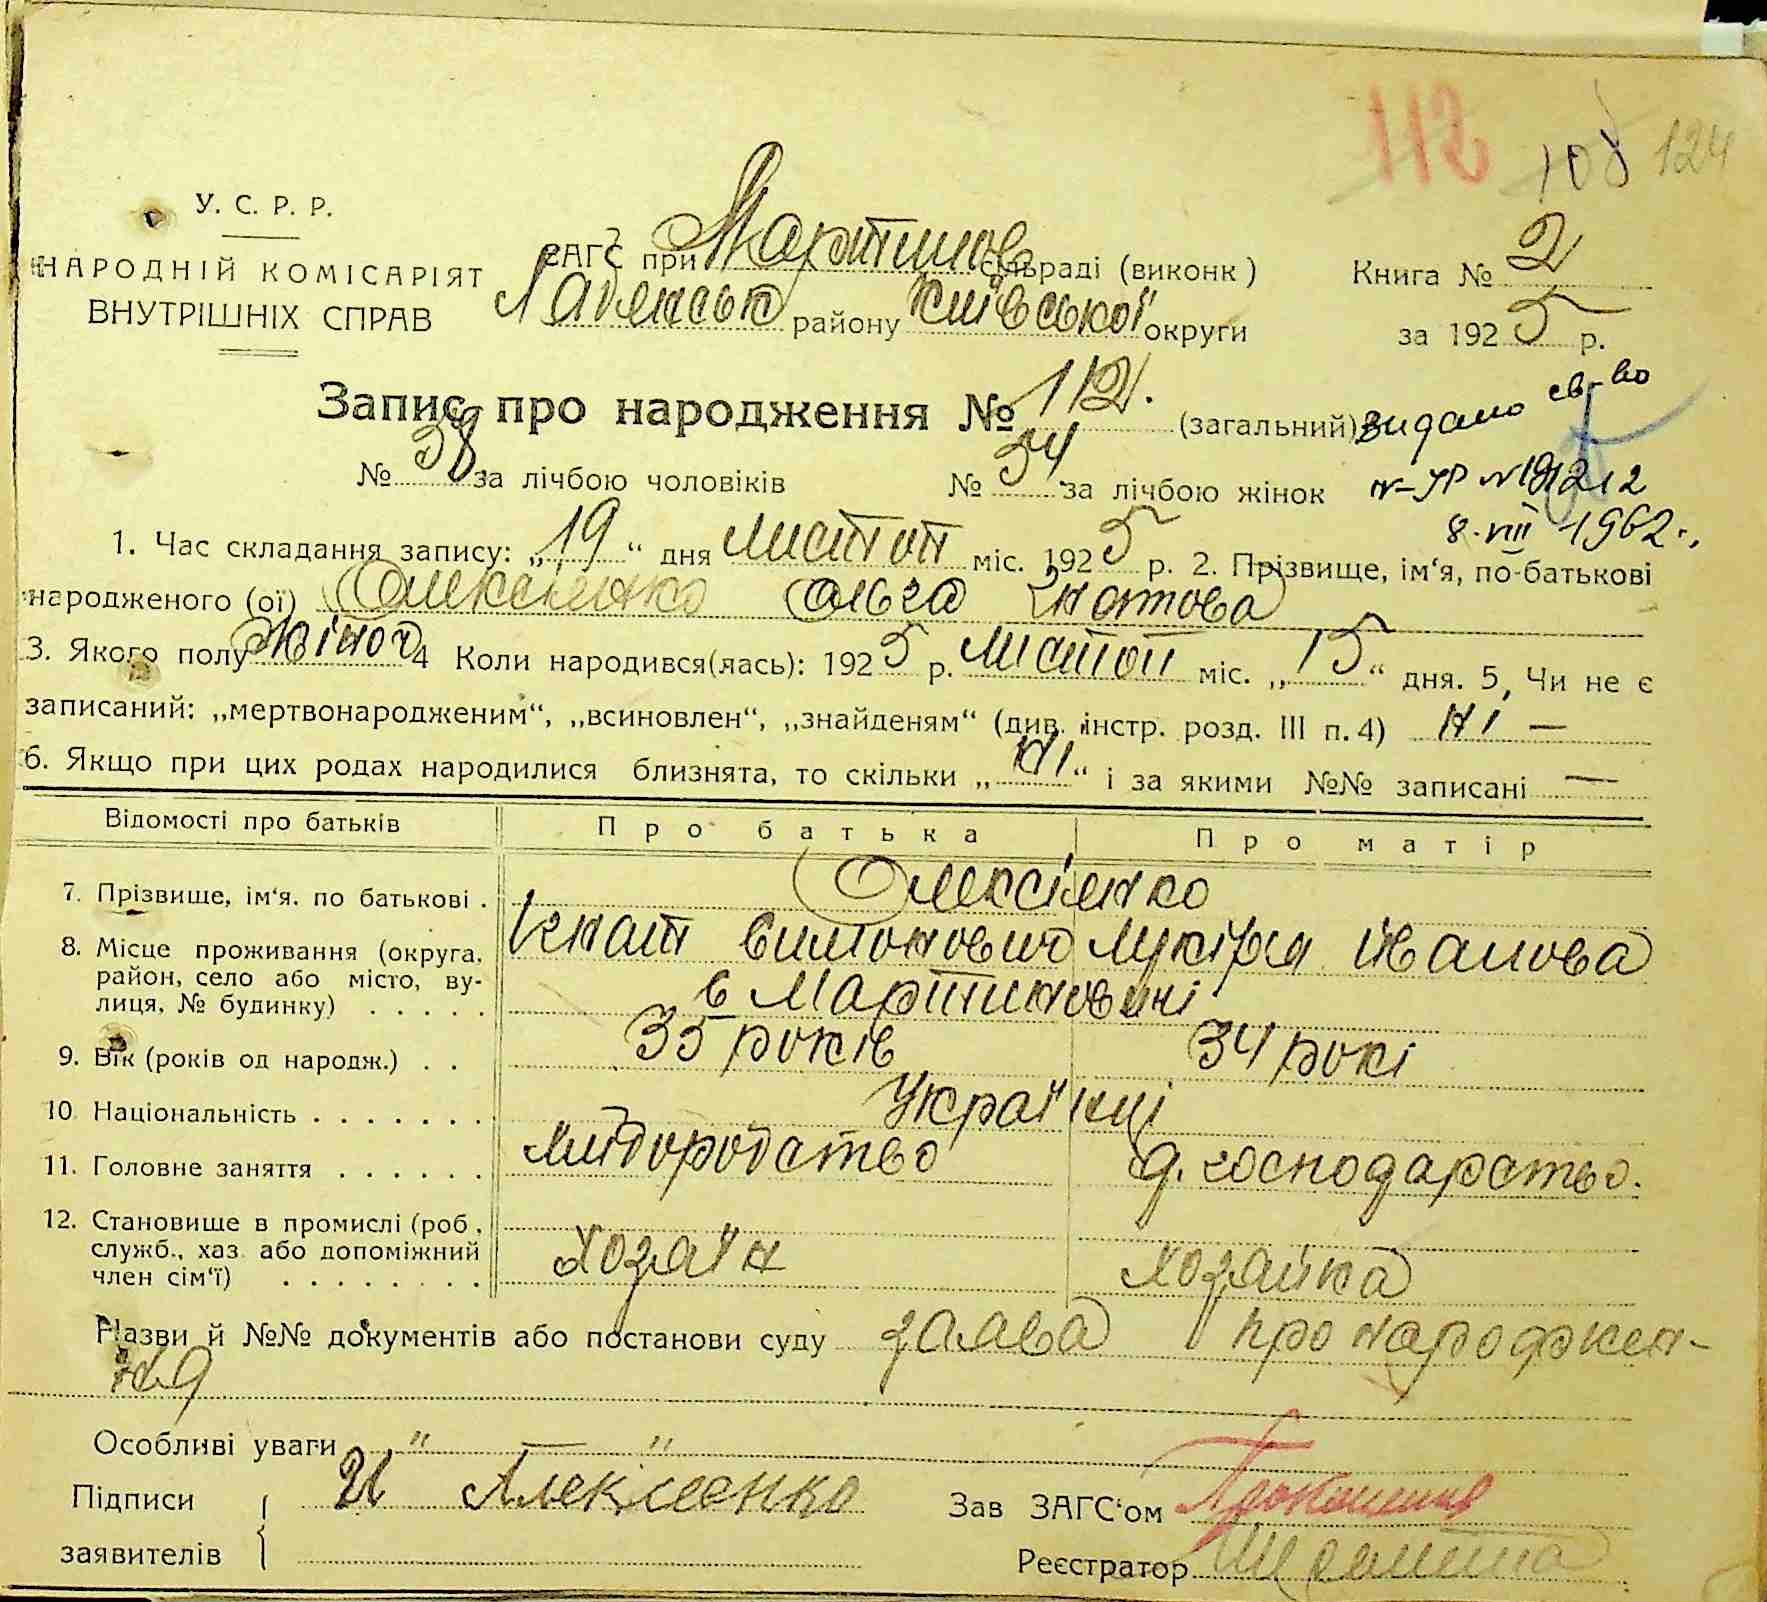 112 108 124
У. С. Р. Р.
НАРОДНІЙ КОМІСАРІЯТ
ВНУТРІШНІХ СПРАВ
ЗАГС при Мартинов сільраді (виконк)
району Київської округи
Книга № 2
за 1925 р.
Запис про народження № 112. (загальний) видано св-во
№ 58 за лічбою чоловіків № 54 за лічбою жінок
8.VIII 1962.
1. Час складання запису: „19“ дня листоп міс. 1925 р. 2. Прізвище, ім‘я, по-батькові
народженого (ої) Олексієнко Ольга Гнатова
3. Якого полу жіноч 4 Коли народився(лась): 1925 р. листоп міс. „15“ дня. 5, Чи не є
записаний: „мертвонародженим“, „всиновлен“, „знайденям“ (див. інстр. розд. III п. 4) ні —
6. Якщо при цих родах народилися близнята, то скільки „ні“ і за якими №№ записані —
Відомості про батьків Про батька Про матір
7. Прізвище, ім‘я. по батькові . Олексієнко
Гнат Симонович Лукіря Іванова
8. Місце проживання (округа, район, село або місто, ву-
лиця, № будинку) . . . . . в Мартиновичі
9. Вік (років од народж.) . . 35 років 34 рокі
10. Національність . . . . . . . Українці
11. Головне заняття . . . . . . хліборобство д. господарство.
12. Становище в промислі (роб.,
служб., хаз. або допоміжний
член сім‘ї) . . . . . . . . Хозяїн Хозяйка
Назви й №№ документів або постанови суду заява про народжен-
ня
Особливі уваги „ — „
Підписи И Алексеенко
Зав ЗАГС‘ом
заявителів
Реєстратор